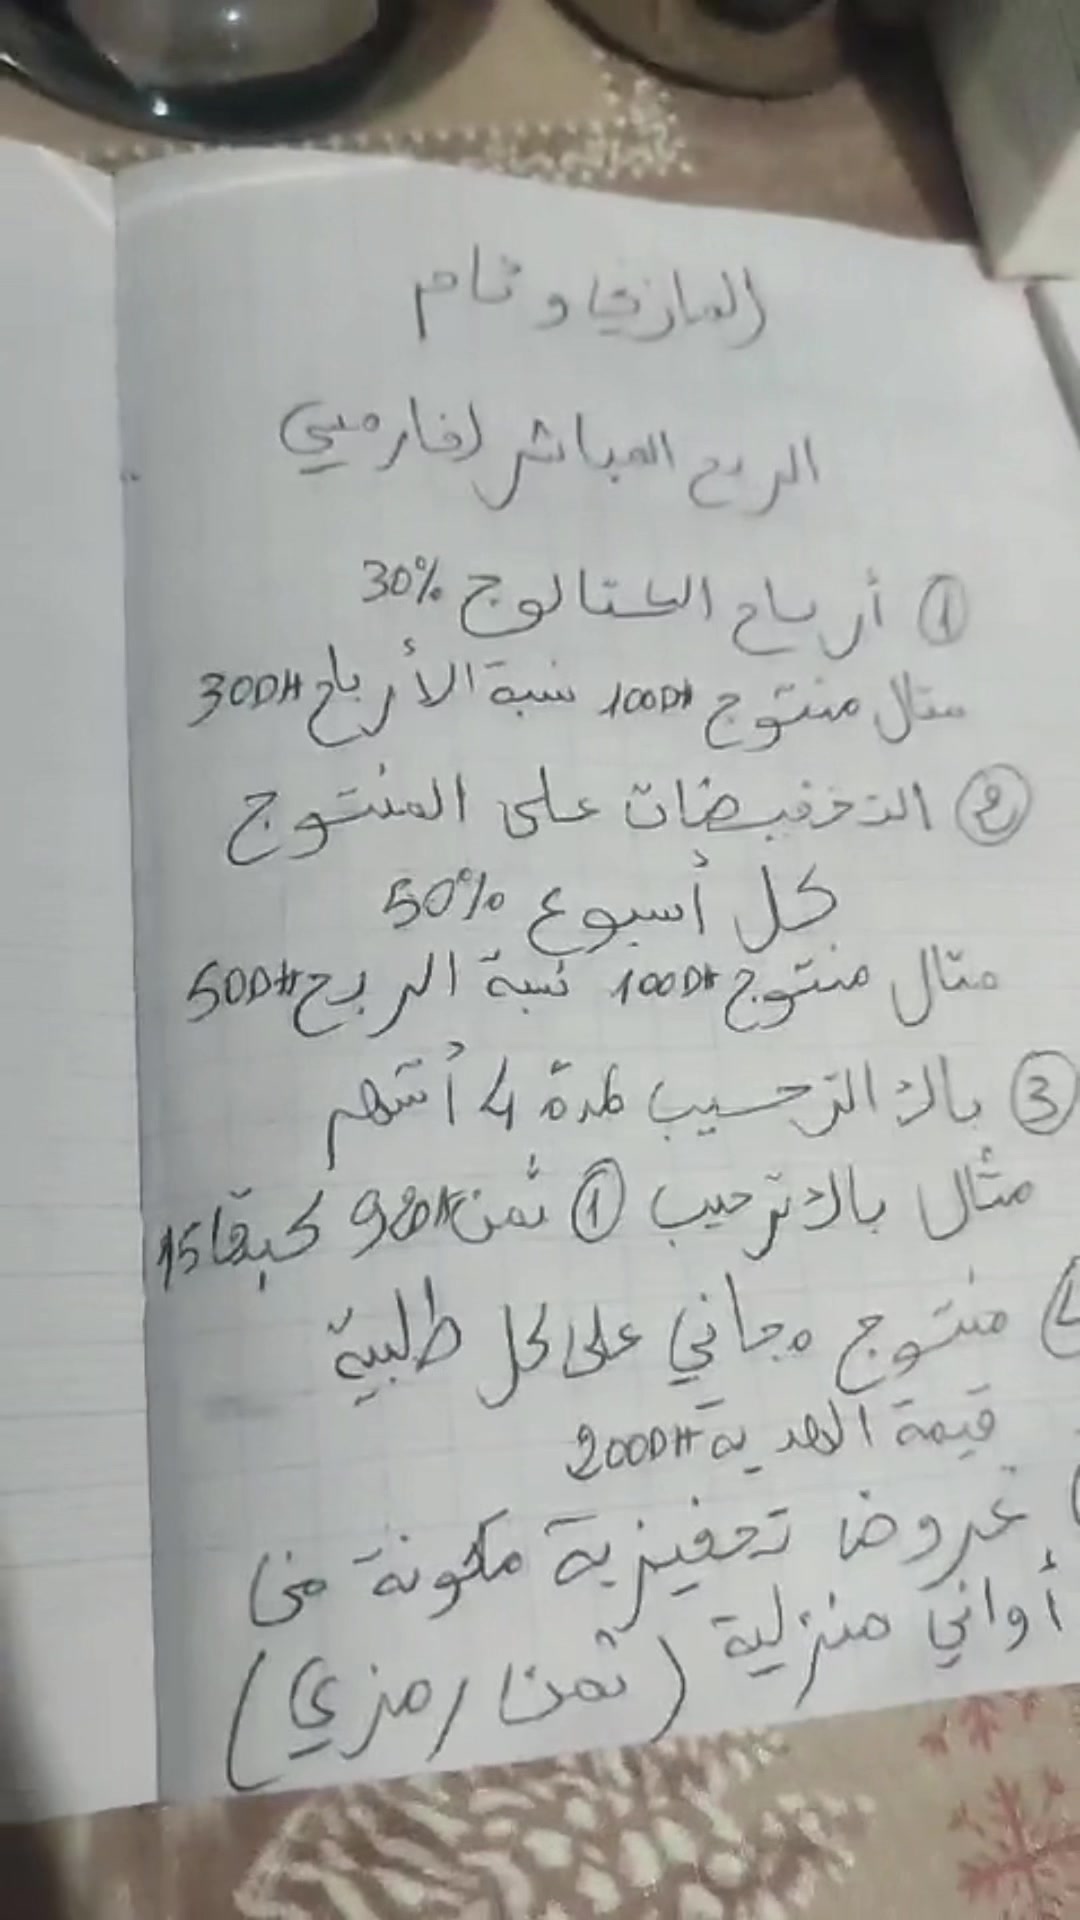 المازي وئام
الربح المباشر لفارميي
① أرباح الكتالوج 30%
مثال منتوج 100DH نسبة الأرباح 30DH
② التخفيضات على المنتوج
كل أسبوع 50%
مثال منتوج 100DH نسبة الربح 50DH
③ باك الترحيب لمدة 4 أشهر
مثال باك ترحيب ① ثمن 92DH كبقا 15
منتوج مجاني على كل طلبية
قيمة الهدية 200DH
عروض تحفيزية مكونة من
أواني منزلية (ثمن رمزي)